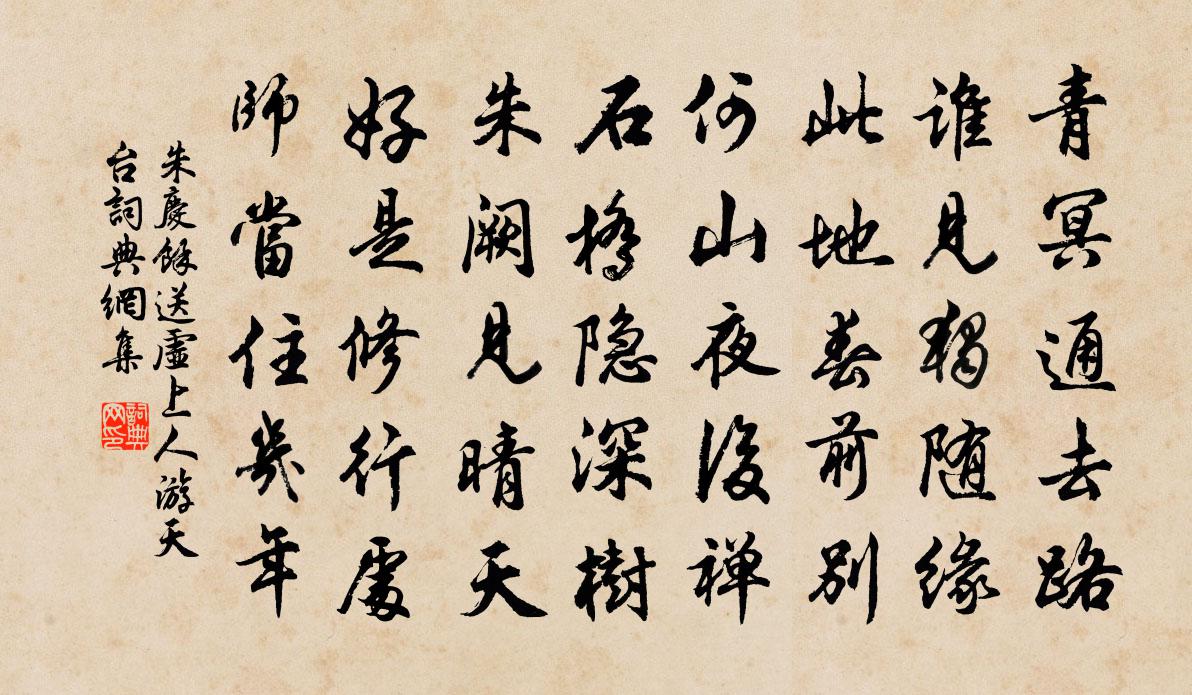 青冥通去路
誰見獨随緣
此地春前別
何山夜後禅
石橋隐深樹
朱阙見晴天
好是修行處
師當住幾年
朱慶餘送虛上人游天
台詞典網集
詞典网印